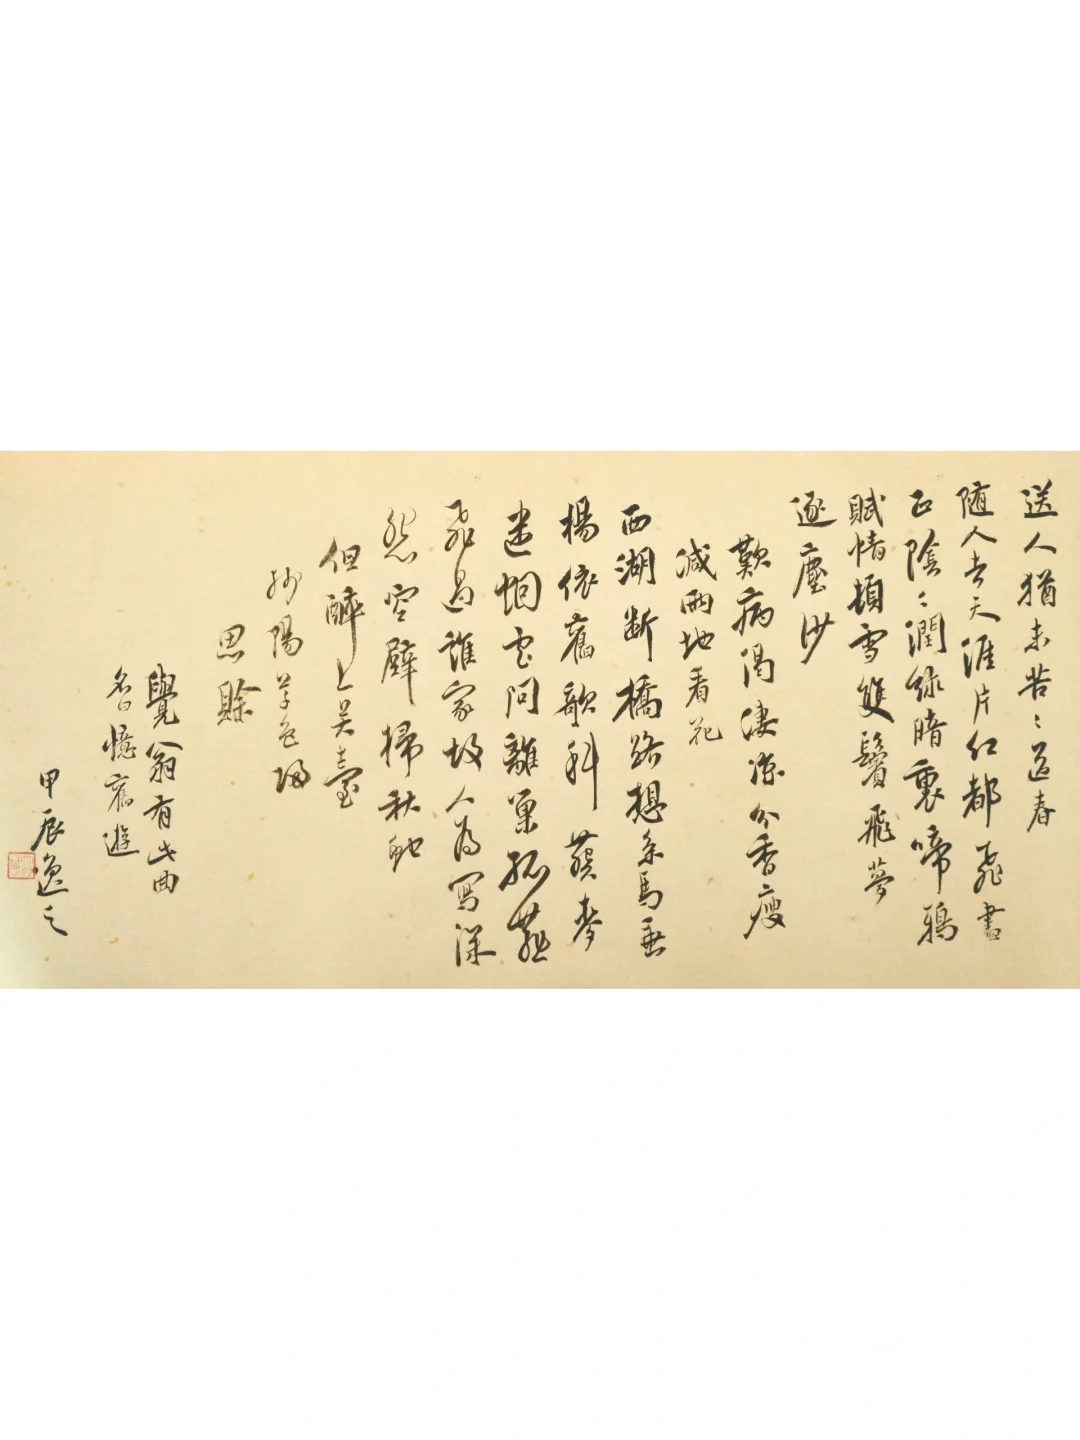 送人猶未苦〻送春
随人去天涯片紅都飛盡
正陰〻潤綠暗裏啼鴉
賦情頓雪雙鬢飛夢
逐塵沙
歎病渴淒涼分香瘦
減兩地看花
西湖断橋路想系馬垂
楊依舊欹斜葵麥
迷烟處問離巢孤燕
飛過誰家故人為寫深
怨空壁掃秋蛇
但醉上吳臺
殘陽草色歸
思賒
覺翁有此曲
名曰憶舊遊
甲辰逸之